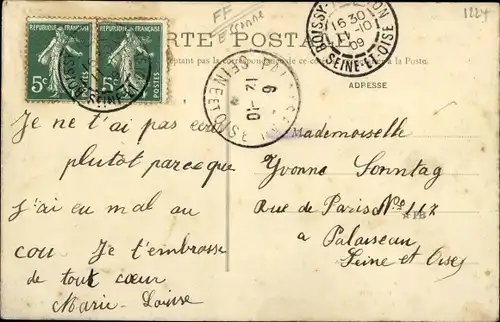 FF
Essonne
1224
RÉPUBLIQUE FRANÇAISE
5c
POSTES
RÉPUBLIQUE FRANÇAISE
5c
POSTES
CARTE POSTALE
ADRESSE
16 30
11 -10
09
SEINE-ET-OISE
12 -10
9
Je ne t'ai pas ecrit
plutôt parceque
j'ai eu mal au
cou Je t'embrasse
de tout cœur
Marie-Louise
Mademoiselle
Yvonne Sonntag
Rue de Paris No 117
a Palaiseau
Seine et Oise